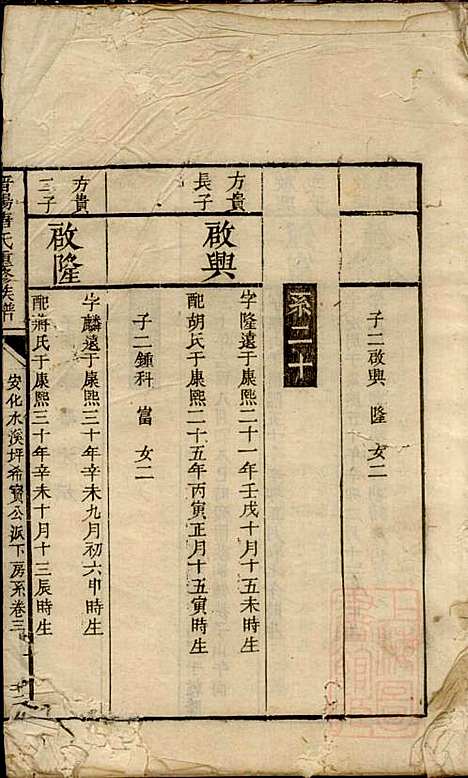 子二啟興 隆 女二
系二十
方貴長子
啟興
字隆遠于康熙二十一年壬戌十月十五未時生
配胡氏于康熙二十五年丙寅正月十五寅時生
子二鍾科 富 女二
方貴三子
啟隆
字麟遠于康熙三十年辛未九月初六申時生
配蔣氏于康熙三十年辛未十月十三辰時生
晋陽唐氏重修族譜
安化水溪坪希賓公派下房系卷三